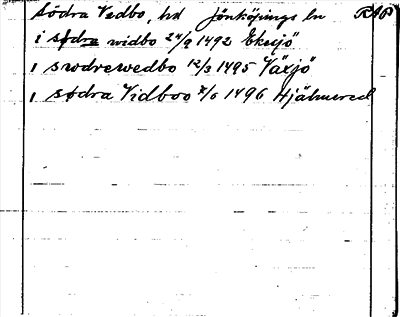 Södra Vedbo, hd Jönköpings ln RAP
i sødre widbo 24/9 1492 Eksjö
i swdrewedbo 12/3 1495 Växjö
i sødra Vidboo 7/6 1496 Hjälmered